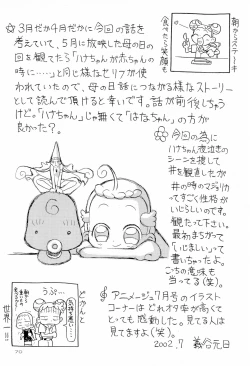 ☆3月だか4月だかに今回の話を
考えていて、5月に放映した母の日の
回を観てたら「ハナちゃんが赤ちゃんの
時に……」と同じ様なセリフが使
われていたので、母の日話につながる様なストーリー
として読んで頂けると幸いです。話が前後しちゃう
けど。"ハナちゃん"じゃ無くて"はなちゃん"の方が
良かった？
朝からステーキ
食べたら笑顔も
☆今回の為に
ハナちゃん夜泣きの
シーンを捜して
#を観直したが
#の時のマジョリカ
ってすっごく性格が
いじらしいのです。
観たって下さい。
最初まちがって
「心ましい」って
書いちゃったよ。
こっちの意味も
当ってる(笑)。
アニメージュ7月号のイラスト
コーナーはどれオタ率が高くて
とっても感動した。見てる人は
見てますよ(笑)。
2002.7
うぷ…
どかんと
世界一!!